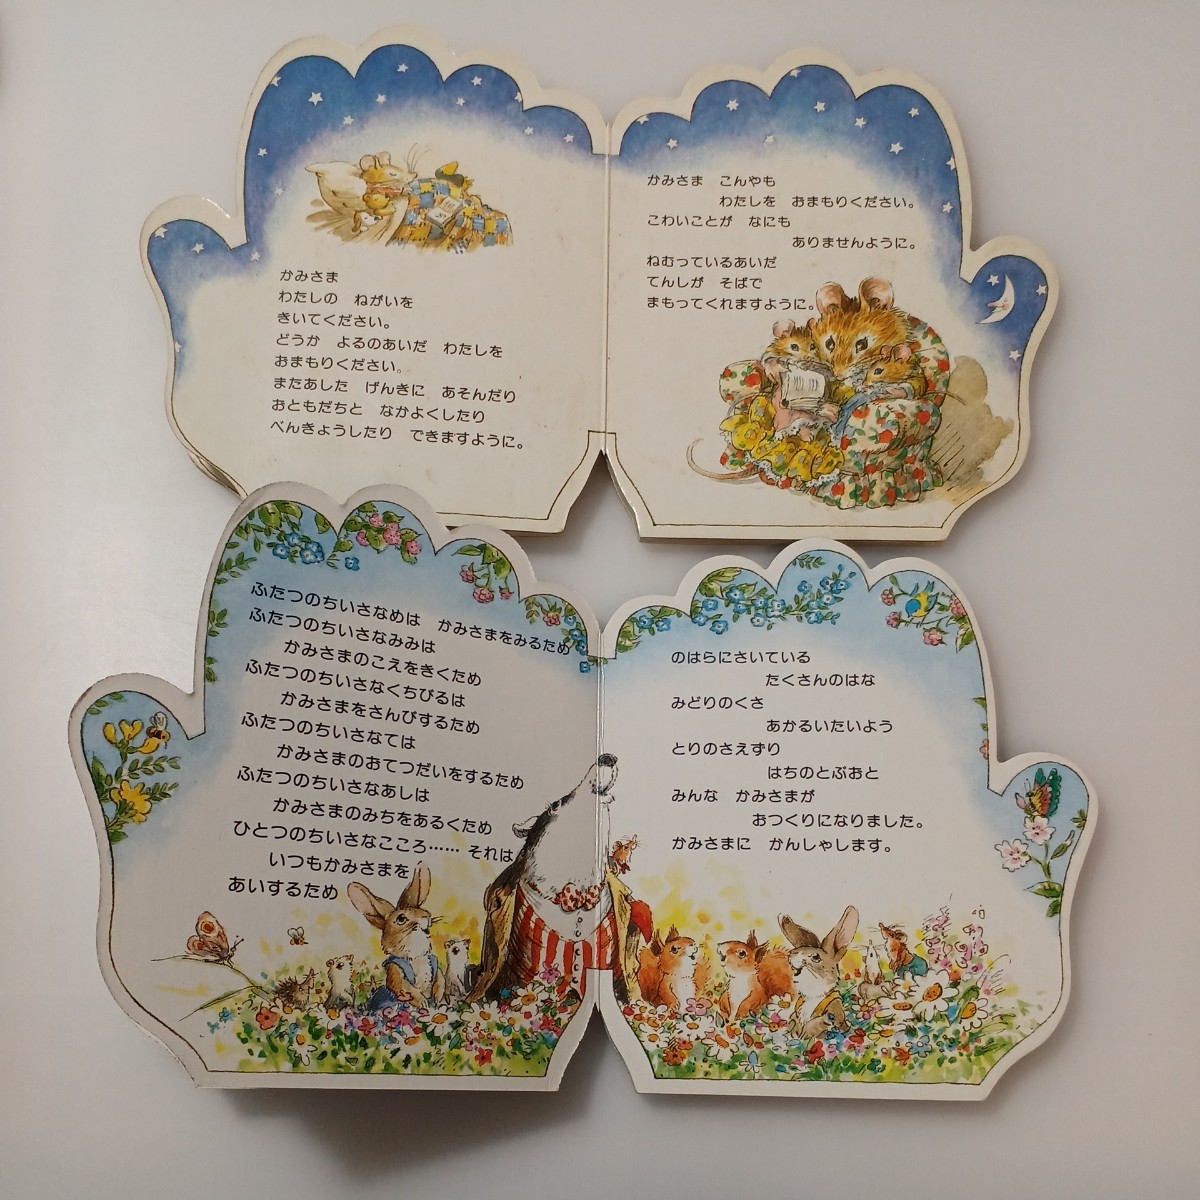 かみさま
わたしの　ねがいを
きいてください。
どうか　よるのあいだ　わたしを
おまもりください。
またあした　げんきに　あそんだり
おともだちと　なかよくしたり
べんきょうしたり　できますように。
かみさま　こんやも
わたしを　おまもりください。
こわいことが　なにも
ありませんように。
ねむっているあいだ
てんしが　そばで
まもってくれますように。
ふたつのちいさなめは　かみさまをみるため
ふたつのちいさなみみは
かみさまのこえをきくため
ふたつのちいさなくちびるは
かみさまをさんびするため
ふたつのちいさなては
かみさまのおてつだいをするため
ふたつのちいさなあしは
かみさまのみちをあるくため
ひとつのちいさなこころ…… それは
いつもかみさまを
あいするため
のはらにさいている
たくさんのはな
みどりのくさ
あかるいたいよう
とりのさえずり
はちのとぶおと
みんな　かみさまが
おつくりになりました。
かみさまに　かんしゃします。